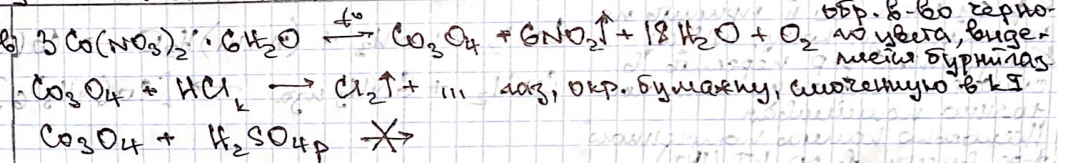 в) 3Co(NO₃)₂ · 6H₂O t°⟶ Co₃O₄ + 6NO₂↑ + 18H₂O + O₂ обр. в-во черно-
го цвета, выде-
ляется бурый газ
Co₃O₄ + HClк ⟶ Cl₂↑ + ... газ, окр. бумажку, смоченную в KI
Co₃O₄ + H₂SO₄р ⟶̸